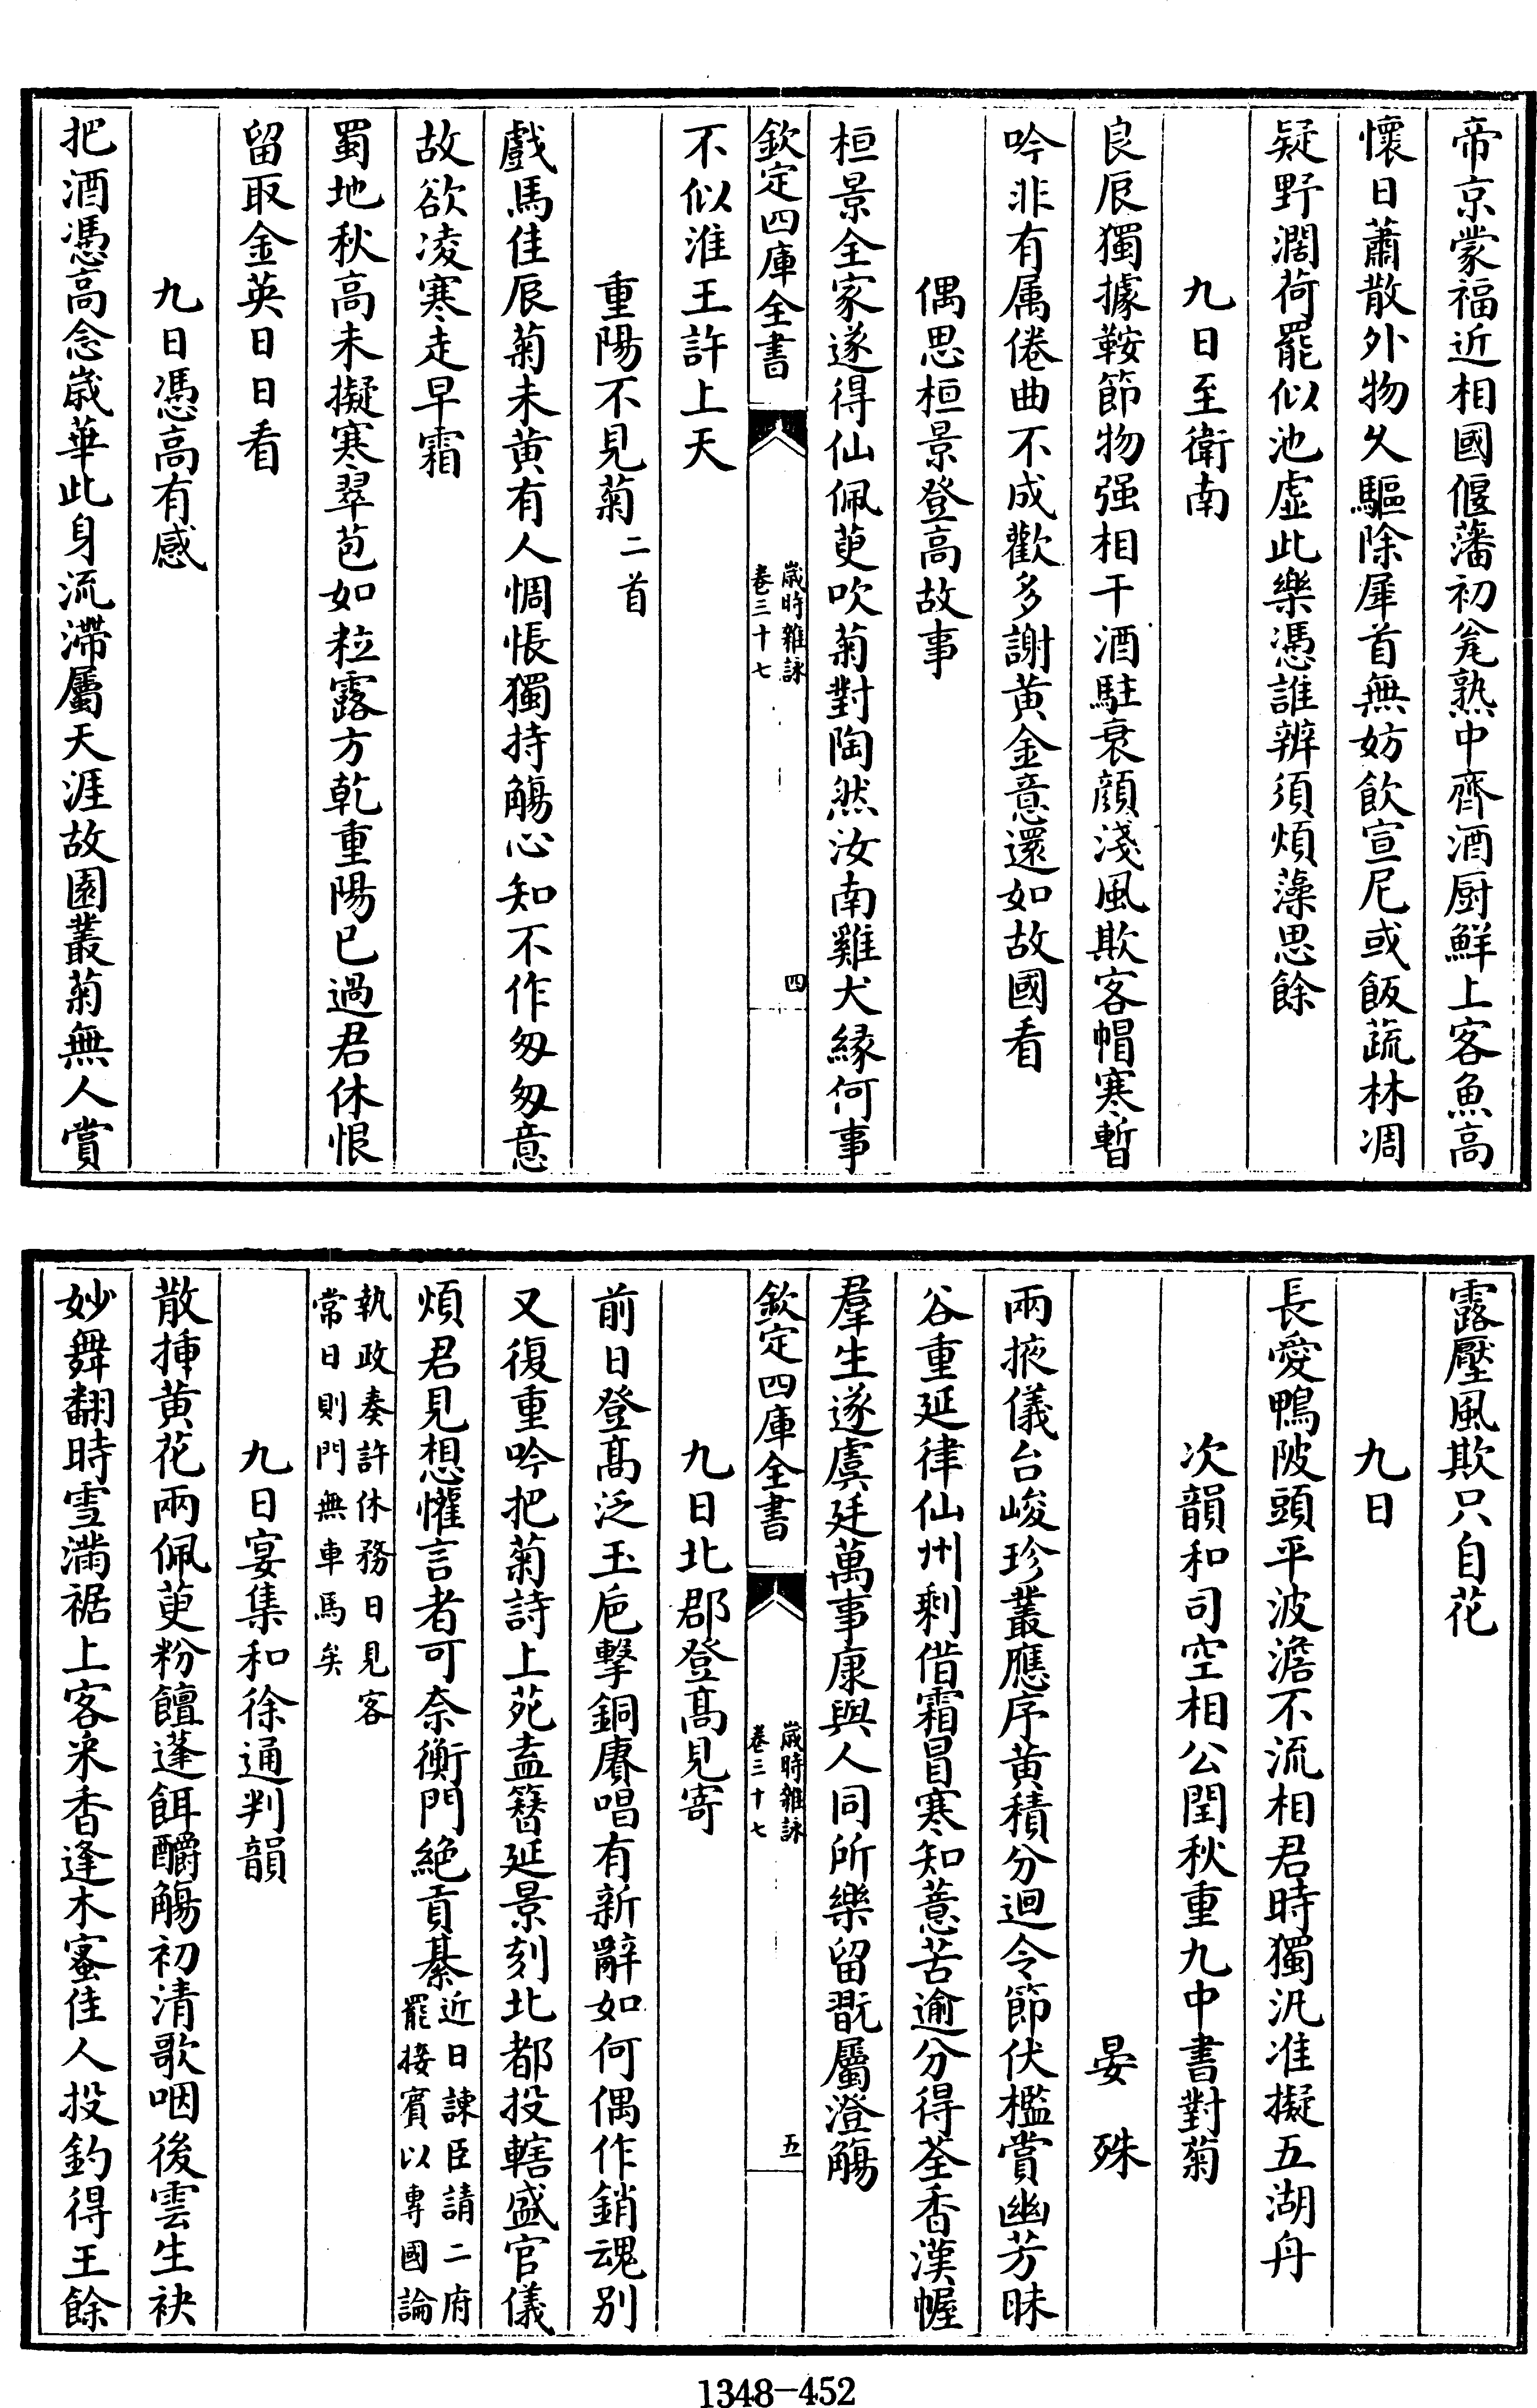 帝京蒙福近相國偃藩初瓮熟中齊酒厨鮮上客魚高
懷日蕭散外物久驅除犀首無妨飲宣尼或飯蔬林凋
疑野濶荷罷似池虚此樂憑誰辨須煩藻思餘
九日至衛南
良辰獨據鞍節物强相干酒駐衰顔淺風欺客帽寒暫
吟非有属倦曲不成歡多謝黄金意還如故國看
偶思桓景登高故事
桓景全家遂得仙佩萸吹菊對陶然汝南雞犬緣何事
欽定四庫全書
歲時雜詠
卷三十七
四
不似淮王許上天
重陽不見菊二首
戲馬佳辰菊未黄有人惆悵獨持觴心知不作匆匆意
故欲凌寒走早霜
蜀地秋高未擬寒翠苞如粒露方乾重陽已過君休恨
留取金英日日看
九日憑高有感
把酒憑高念歲華此身流滯屬天涯故園叢菊無人賞
露壓風欺只自花
九日
長愛鴨陂頭平波澹不流相君時獨汎准擬五湖舟
次韻和司空相公閏秋重九中書對菊
晏殊
兩掖儀台峻珍叢應序黄積分迴令節伏檻賞幽芳昧
谷重延律仙州剩偕霜冒寒知薏苦逾分得荃香漢幄
羣生遂虞廷萬事康與人同所樂留翫屬澄觴
欽定四庫全書
歲時雜詠
卷三十七
五
九日北郡登髙見寄
前日登髙泛玉巵擊銅賡唱有新辭如何偶作銷魂别
又復重吟把菊詩上苑盍簪延景刻北都投轄盛官儀
煩君見想懽言者可奈衡門絶貢綦近日諫臣請二府罷接賓以專國論
執政奏許休務日見客常日則門無車馬矣
九日宴集和徐通判韻
散揷黄花兩佩萸粉饘蓬餌釂觴初清歌咽後雲生袂
妙舞翻時雪滿裾上客采香逢木蜜佳人投釣得王餘
1348-452